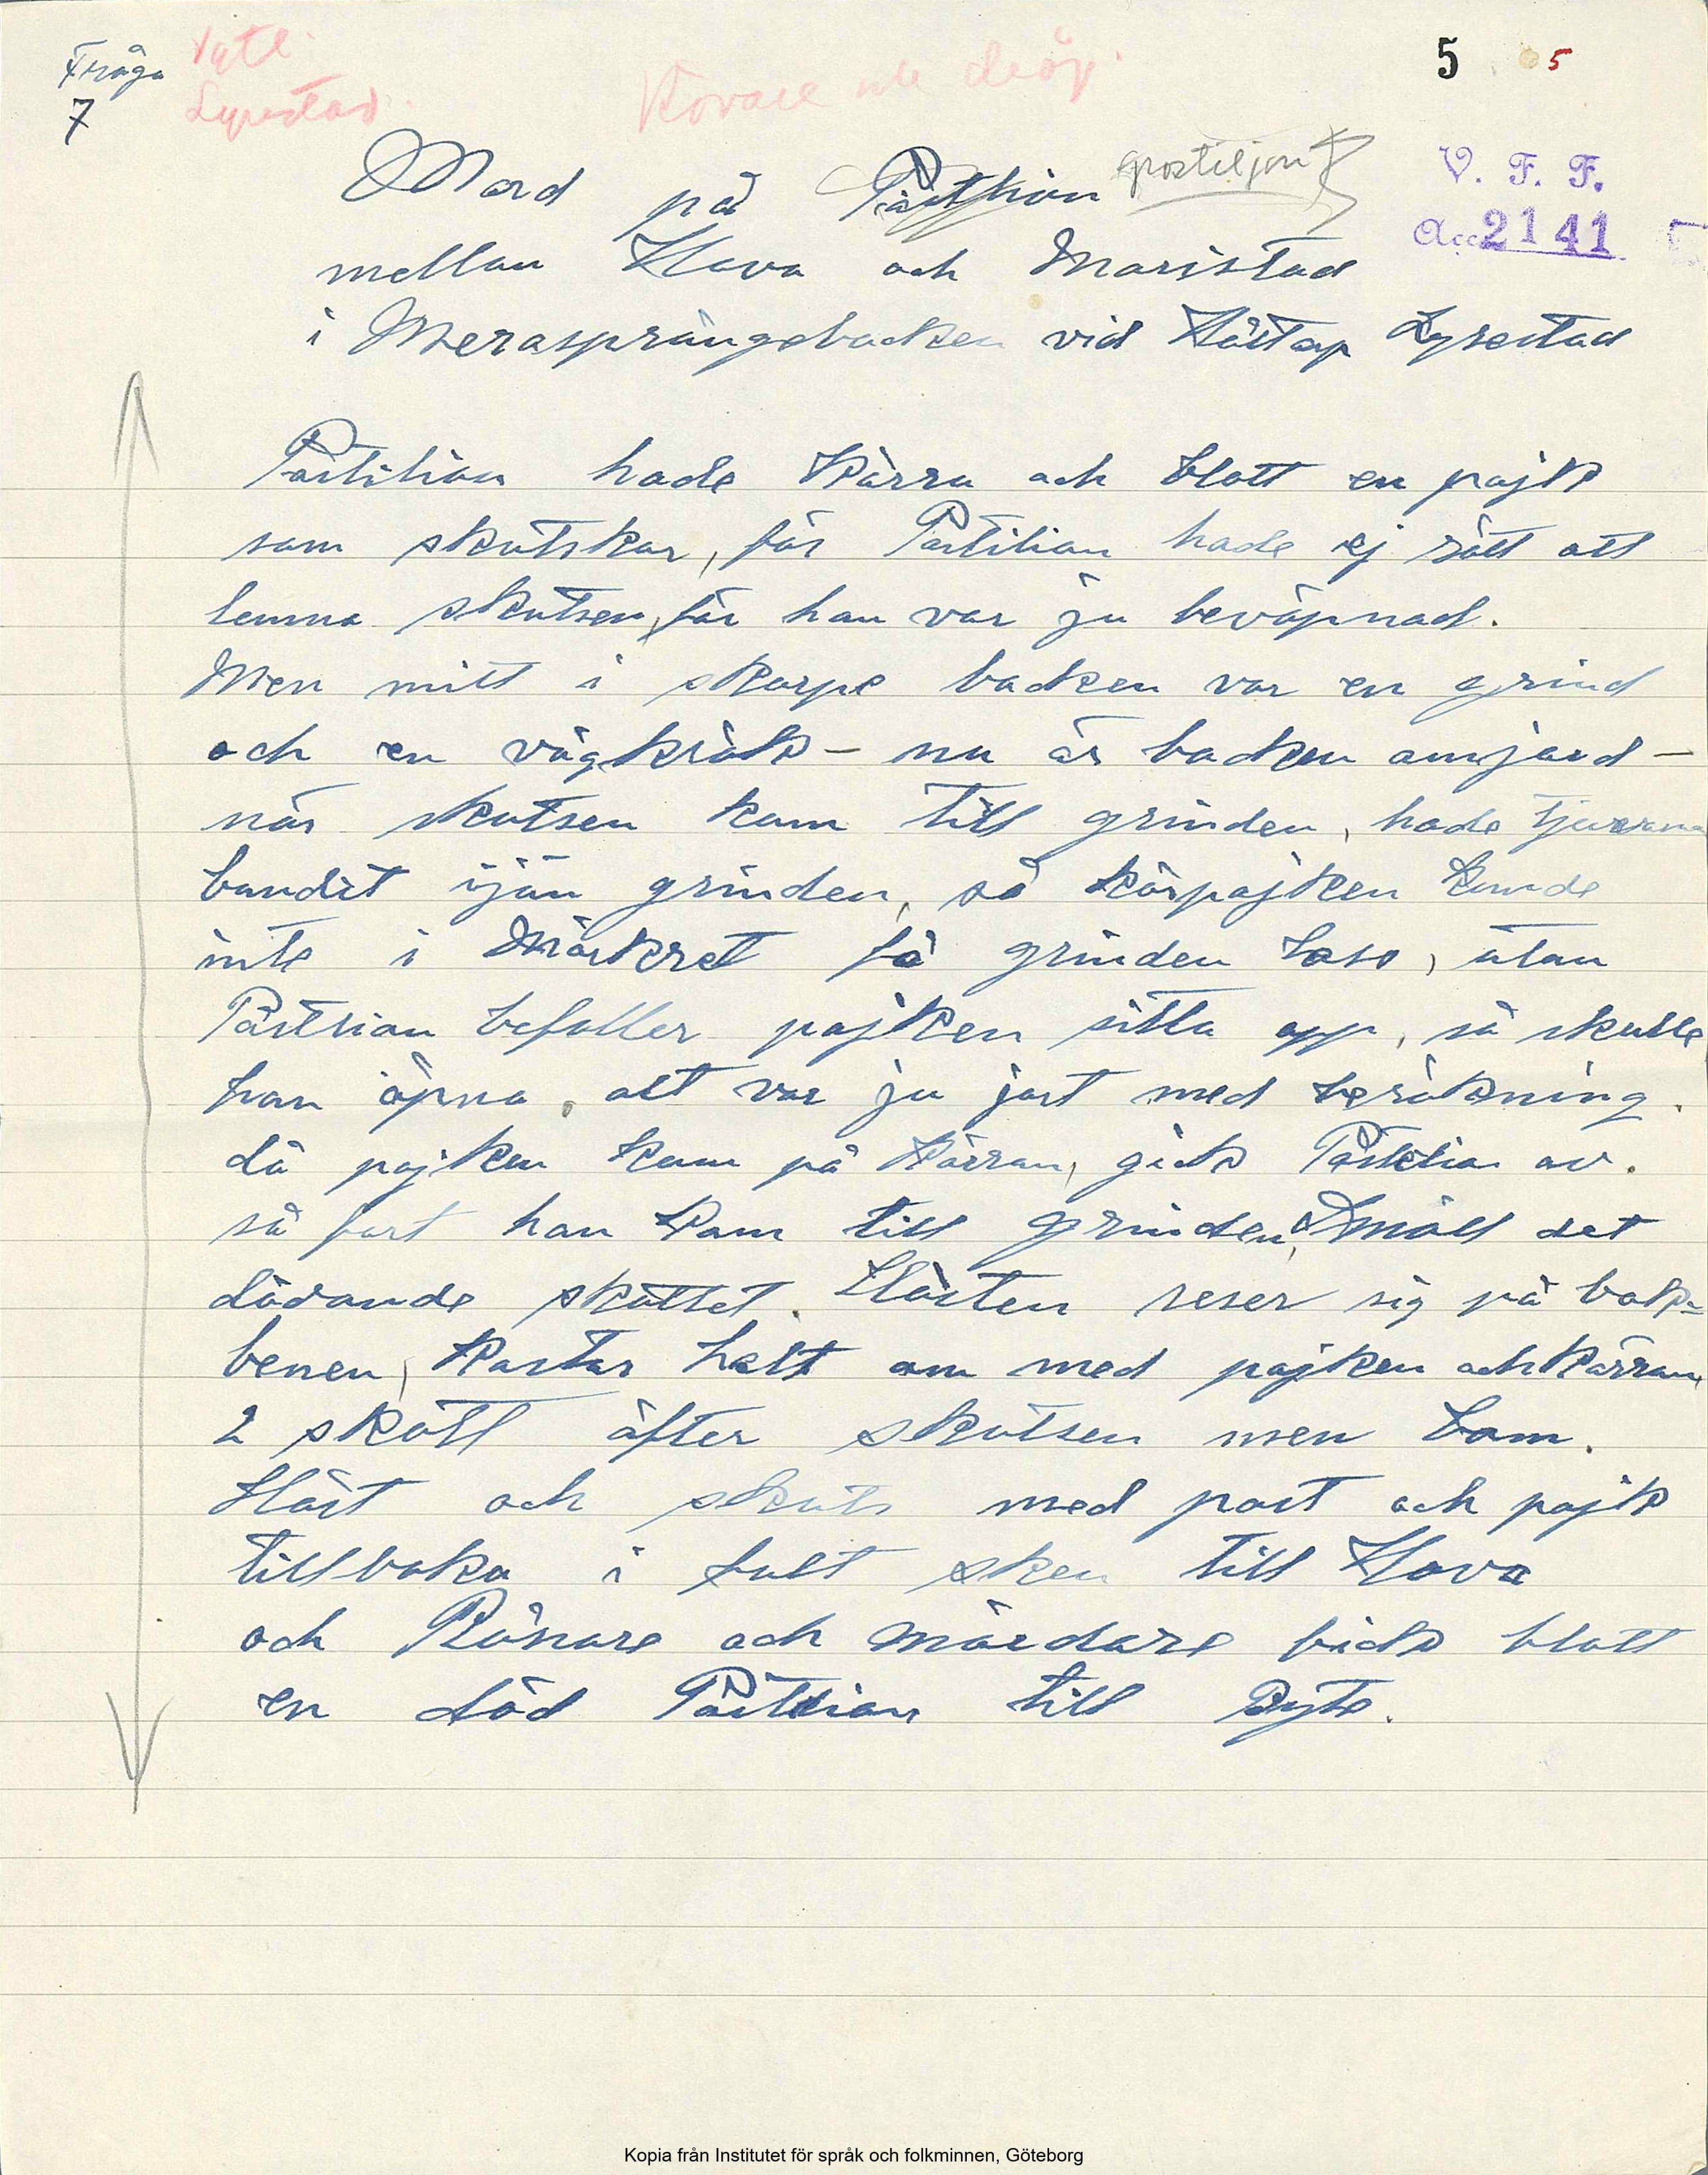 Fråga
7
Lyrestad
5 5
V. F. F.
Acc 2141
Mord på Påsthion postiljon
mellan Hova och Maristad
i Merasprångsbacken vid Höstorp Lyrestad
Påstilion hade Kärra och blott en pojk
som skutskar, för Påstilion hade ej rätt att
lemna skutsen, för han var ju beväpnad.
Men mitt i skarpe backen var en grind
och en vägkrök – nu är backen omjord –
når skutsen kam till grinden, hade tjuverna
bundit ijän grinden, så körpojken kunde
inte i Mörkret få grinden loso, utan
Påstion befaller pojken sitta opp, så skulle
han öpna, alt var ju jort med beräkning.
då pojken kam på Kärran, gick Påstilion av.
så fort han kam till grinden, Smäll det
dödande skottet. Hästen reser sig på bak=
benen, Kastar helt om med pojken och Kärran,
2 skått äfter skutsen men bom.
Häst och skuts med post och pojk
tillbaka i fult sken till Hova
och Rånare och mördare fick blott
en död Påstilion till Byte.
Kopia från Institutet för språk och folkminnen, Göteborg